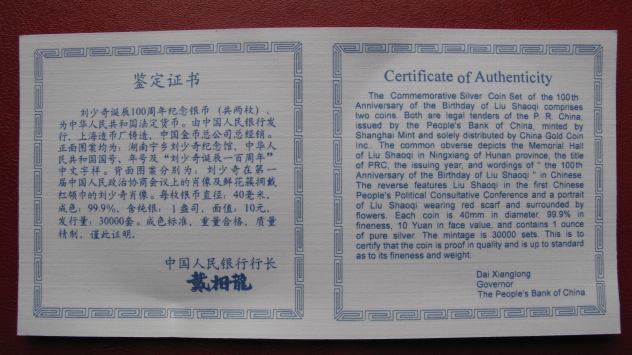 鉴定证书
刘少奇诞辰100周年纪念银币（共两枚），
为中华人民共和国法定货币。由中国人民银行发
行，上海造币厂铸造，中国金币总公司总经销。
正面图案均为：湖南宁乡刘少奇纪念馆、中华人
民共和国国号、年号及“刘少奇诞辰一百周年”
中文字样。背面图案分别为：刘少奇在第一
届中国人民政治协商会议上的肖像及鲜花簇拥戴
红领巾的刘少奇肖像。每枚银币直径：40毫米，
成色：99.9%，含纯银：1盎司，面值：10元，
发行量：30000套。成色标准，重量合格，质量
精制，谨此证明。
中国人民银行行长
戴相龍
Certificate of Authenticity
The Commemorative Silver Coin Set of the 100th
Anniversary of the Birthday of Liu Shaoqi comprises
two coins. Both are legal tenders of the P. R. China,
issued by the People's Bank of China, minted by
Shanghai Mint and solely distributed by China Gold Coin
Inc.. The common obverse depicts the Memorial Hall
of Liu Shaoqi in Ningxiang of Hunan province, the title
of PRC, the issuing year, and wordings of " the 100th
Anniversary of the Birthday of Liu Shaoqi " in Chinese.
The reverse features Liu Shaoqi in the first Chinese
People's Political Consultative Conference and a portrait
of Liu Shaoqi wearing red scarf and surrounded by
flowers. Each coin is 40mm in diameter, 99.9% in
fineness, 10 Yuan in face value, and contains 1 ounce
of pure silver. The mintage is 30000 sets. This is to
certify that the coin is proof in quality and is up to standard
as to its fineness and weight.
Dai Xianglong
Governor
The People's Bank of China